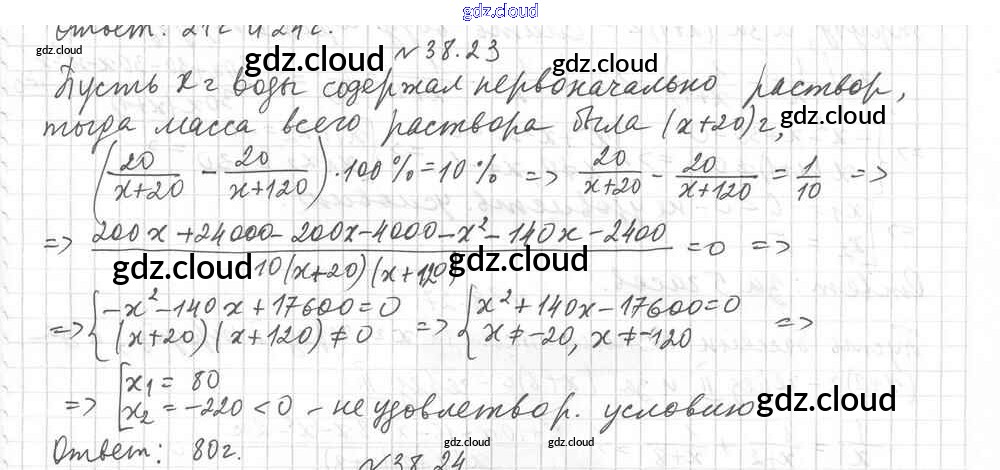 gdz.cloud
Ответ: 21г и 24г.
gdz.cloud
№38.23
gdz.cloud
gdz.cloud
Пусть x г воды содержал первоначально раствор,
тогда масса всего раствора была (x+20)г,
gdz.cloud
(20/(x+20) - 20/(x+120))·100%=10% => 20/(x+20) - 20/(x+120) = 1/10 =>
=> (200x+24000-200x-4000-x²-140x-2400)/(10(x+20)(x+120)) =0 =>
gdz.cloud gdz.cloud
=> { -x²-140x+17600=0 => { x²+140x-17600=0
(x+20)(x+120)≠0 x≠-20, x≠-120 =>
=> [ x₁ = 80
x₂ = -220<0 - не удовлетвор. условию
gdz.cloud
Ответ: 80г.
gdz.cloud gdz.cloud
№38.24
gdz.cloud